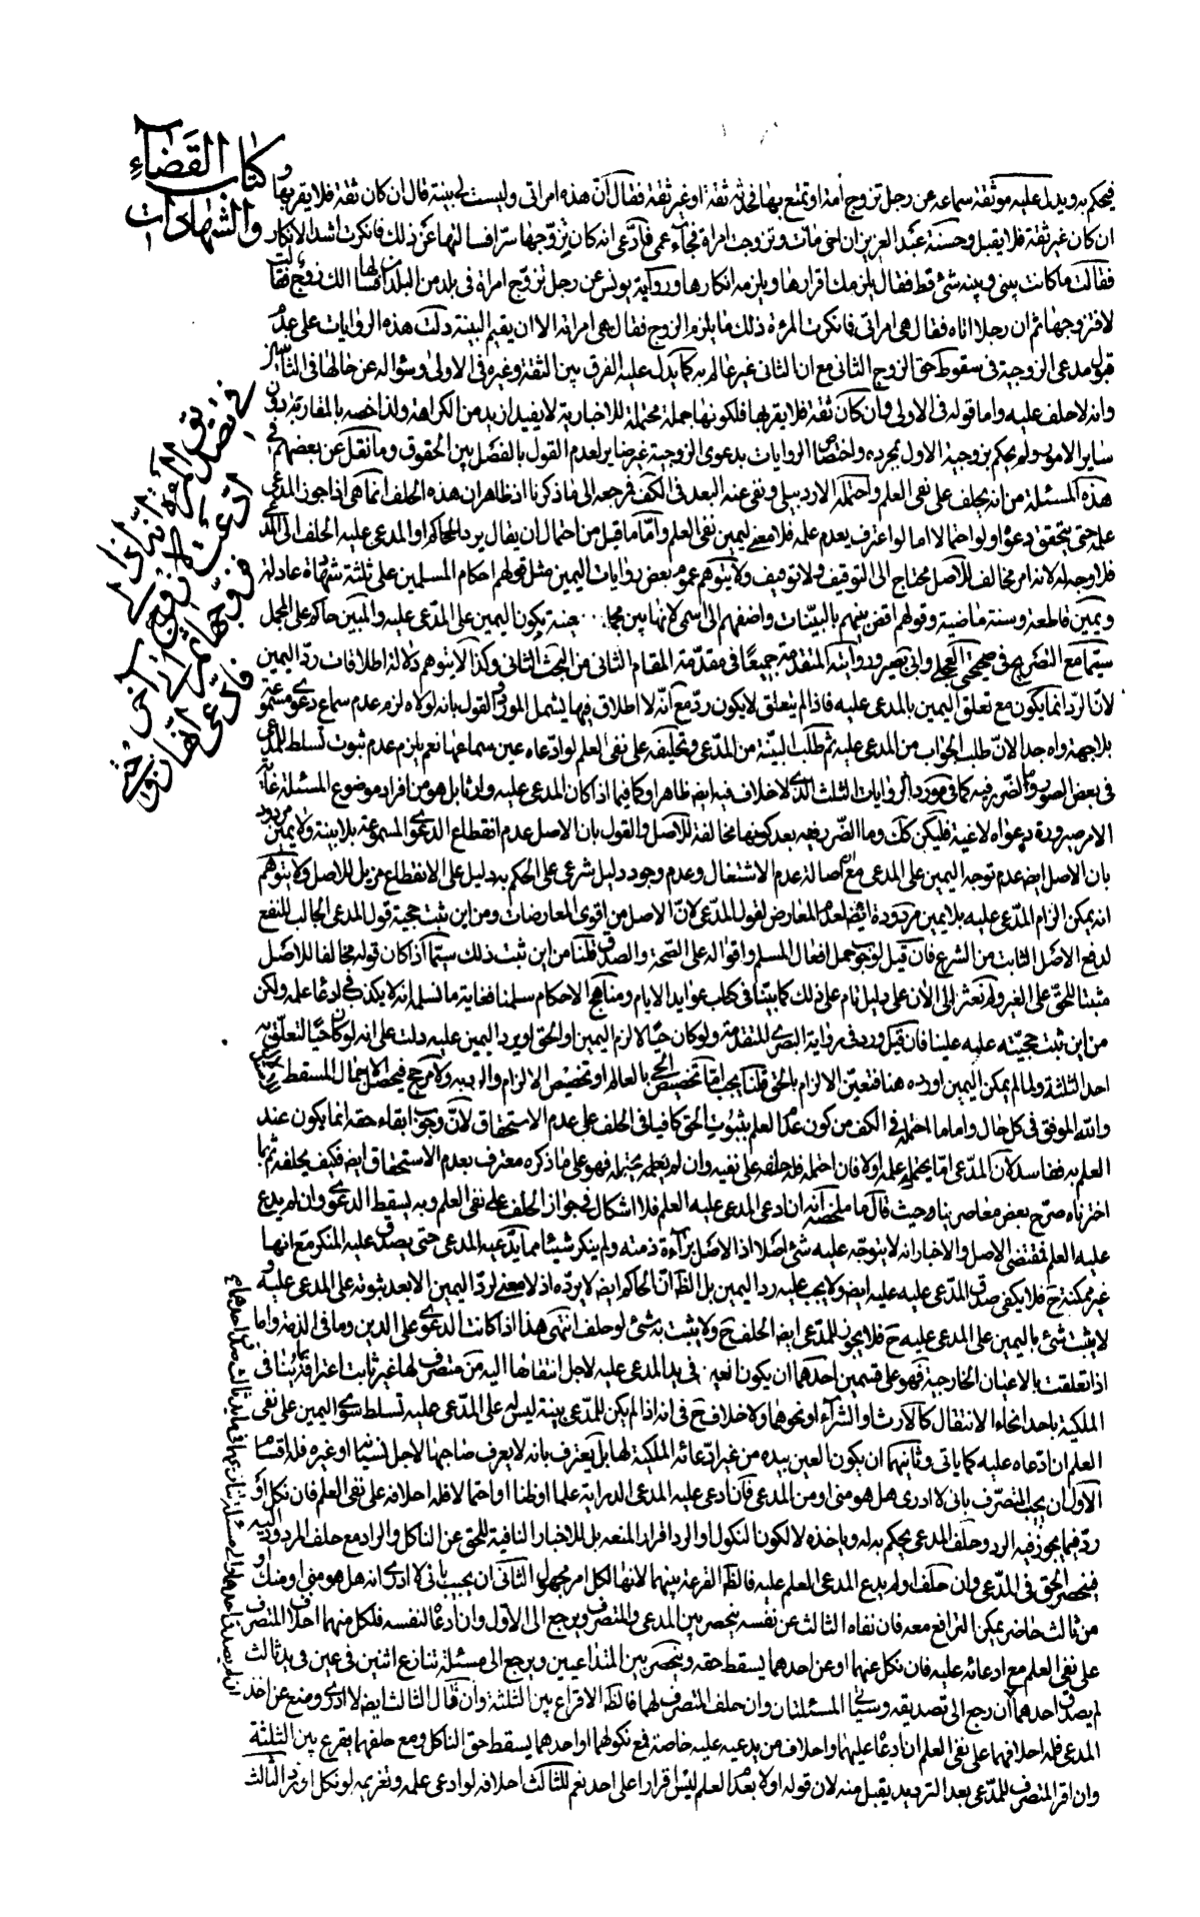 كتاب القضاء
والشهادات
فيحكم به ويدل عليه موثقة سماعة عن رجل تزوج أمة او تمتع بها فحدثه ثقة او غير ثقة فقال ان هذه امراتى وليست لى بينة قال ان كان ثقة فلا يقربها و
ان كان غير ثقة فلا يقبل وحسنة عبد العزيز ان اخى مات وتزوجت امراة فجاء عمى فادعى انه كان تزوجها سرا فسالتها عن ذلك فانكرت اشد الانكار
فقالت ما كانت بينى وبينه شئ قط فقال يلزمك اقرارها ويلزمه انكارها ورواية يونس عن رجل تزوج امراة فى بلد من البلدان فسالها الك زوج فقالت
لا فتزوجها ثم ان رجلا اتاه فقال هى امراتى فانكرت المرءة ذلك ما يلزم الزوج فقال هى امراته الا ان يقيم البينة دلت هذه الروايات على عدم
قبول مدعى الزوجية فى سقوط حق الزوج الثانى مع ان الثانى غير عالم به كما يدل عليه الفرق بين الثقة وغيره فى الاولى وسؤاله عن حالها فى الثانية
وانه لا حلف عليه واما قوله فى الاولى وان كان ثقة فلا يقربها فلكونها جملة محتملة للاخبارية لا يفيد ازيد من الكراهة ولذا خصه بالمقاربة دون
ساير الامور ولم يحكم بزوجية الاول بمجرده واختصاص الروايات بدعوى الزوجية غير ضاير لعدم القول بالفصل بين الحقوق وما نقل عن بعضهم فى
هذه المسئلة من انه يحلف على نفى العلم واحتمله الاردبيلى ونفى عنه البعد فى الكف فرجعه الى ما ذكرنا اذ ظاهر ان هذه الحلف انما هى اذا جوز المدعى
علمه حتى يتحقق دعوا ولو احتمالا اما لو اعترف بعدم علمه فلا معنى ليمين نفى العلم واما ما قيل من احتمال ان يقال يرد الحاكم او المدعى عليه الحلف الى المدعى
فلا وجه له لانه امر مخالف للاصل محتاج الى التوقيف ولا توقيف ولا يتوهم عموم بعض روايات اليمين مثل قولهم احكام المسلمين على ثلثة شهادة عادلة
ويمين قاطعة وسنة ماضية وقولهم اقض بينهم بالبينات واضفهم الى اسمى لانها بين يكون اليمين على المدعى عليه والمبين حاكم على المجمل
سيما مع التصريح فى صحيحتى العجلى وابى بصير وروايته المتقدمة جميعا فى مقدمة المقام الثانى من البحث الثانى وكذا لا يتوهم دلالة اطلاقات رد اليمين
لان الرد انما يكون مع تعلق اليمين بالمدعى عليه فاذا لم يتعلق لا يكون رد مع انه لا اطلاق فيها يشمل المورد والقول بانه لولاه لزم عدم سماع دعوى مسموعة
بلا جهة واه جدا لان طلب الجواب من المدعى عليه ثم طلب البينة من المدعى وتحليفه على نفى العلم لو ادعاه عين سماعها نعم يلزم عدم ثبوت تسلط للمدعى
فى بعض الصور وما الضرر فيه كما فى مورد الروايات الثلث الذى لا خلاف فيه ايضا ظاهرا وكما فيما اذا كان المدعى عليه وارثا بل هو من افراد موضوع المسئلة غاية
الامر صيرورة دعواه لاغية فليكن كك وما الضرر فيه بعد كونها مخالفة للاصل والقول بان الاصل عدم انقطاع الدعوى المسموعة بلا بينة ولا يمين مردود
بان الاصل ايضا عدم توجه اليمين على المدعى مع اصالة عدم الاشتغال وعدم وجود دليل شرعى على الحكم به دليل على الانقطاع مزيل للاصل ولا يتوهم
انه يمكن الزام المدعى عليه بلا يمين مردودة ايضا لعدم المعارض لقول المدعى لان الاصل من اقوى المعارضات ومن اين ثبت حجية قول المدعى الجالب للنفع
لدفع الاصل الثابت من الشرع فان قيل لوجوب حمل افعال المسلم واقواله على الصحة والصدق قلنا من اين ثبت ذلك سيما اذا كان قوله مخالفا للاصل
مثبتا للحق على الغير ولم نعثر الى الان على دليل تام على ذلك كما بينا فى كتاب عوايد الايام ومناهج الاحكام سلمنا فغاية ما نسلمه انه لا يكذب فى ادعاء علمه ولكن
من اين ثبت حجيته عليه علينا فان قيل ورد فى رواية البصرى المتقدمة ولو كان حيا لالزم اليمين او الحق او يرد اليمين عليه دلت على انه لو كان حيا لتعلق به
احد الثلثة ولما لم يمكن اليمين او رده هنا فتعين الالزام بالحق قلنا يجب اما تخصيص الحى بالعالم او تخصيص الالزام والرد به ولا مرجح فيحصل الاجمال المسقط
والله الموفق فى كل حال واما ما احتمله فى الكف من كون عدم العلم بثبوت الحق كافيا فى الحلف على عدم الاستحقاق لان وجوب ابقاء حقه انما يكون عند
العلم به ففاسد لان المدعى اما يحتمل علمه اولا فان احتمله فله حلفه على نفيه وان لم يحتمله فهو على ما ذكره معترف بعدم الاستحقاق ايضا فكيف يحلفه ثم بما
اخترناه صرح بعض معاصرينا وحيث قال ما ملخصه انه ان ادعى المدعى عليه العلم فلا اشكال فى جواز الحلف على نفى العلم وبه يسقط الدعوى وان لم يدع
عليه العلم فمقتضى الاصل والاخبار انه لا يتوجه عليه شئ اصلا اذ الاصل برائة ذمته ولم ينكر شيئا مما يدعيه المدعى حتى يصدق عليه المنكر مع انها
غير ممكنة ح فلا يكفى صدق المدعى عليه عليه ايضا ولا يجب عليه رد اليمين بل الظ ان الحاكم ايضا لا يرده اذ لا معنى لرد اليمين الا بعد ثبوته على المدعى عليه و
لا يثبت شئ باليمين على المدعى عليه ح فلا يجوز للمدعى ايضا الحلف ح ولا يثبت به شئ لو حلف انتهى هذا اذا كانت الدعوى على الدين وما فى الذمة واما
اذا تعلقت بالاعيان الخارجية فهو على قسمين احدهما ان يكون العين فى يد المدعى عليه لاجل انتقالها اليه من متصرف لها غير ثابت اعترافه بما ينافى
الملكية باحد انحاء الانتقال كالارث او الشراء او نحوهما ولا خلاف ح فى انه اذا لم يكن للمدعى بينة ليس له على المدعى عليه تسلط سوى اليمين على نفى
العلم ان ادعاه عليه كما ياتى وثانيهما ان يكون العين بيده من غير ادعائه الملكية لها بل يعترف بانه لا يعرف صاحبها لاجل نسيان او غيره فله اقسام
الاول ان يجيب المتصرف بانى لا ادرى هل هو منى او من المدعى فان ادعى عليه المدعى الدراية علما او ظنا او احتمالا فله احلافه على نفى العلم فان نكل او
رد فيما يجوز فيه الرد وحلف المدعى يحكم به له وياخذه لا لكون النكول او الرد اقرارا لمنعه بل للاخبار النافية للحق عن الناكل والراد مع حلف المردود اليه
فينحصر الحق فى المدعى وان حلف او لم يدع المدعى العلم عليه فالظ القرعة بينهما لانها لكل امر مجهول الثانى ان يجيب بانى لا ادرى انه هل هو منى او منك او
من ثالث حاضر يمكن الترافع معه فان نفاه الثالث عن نفسه ينحصر بين المدعى والمتصرف ويرجع الى الاول وان ادعاه لنفسه فلكل منهما احلاف المتصرف
على نفى العلم مع ادعائه عليه فان نكل عنهما او عن احدهما يسقط حقه وينحصر بين المتداعيين ويرجع الى مسئلة تنازع اثنين فى عين فى يد ثالث
لم يصدق احدهما ان رجع الى تصديقه وسياتى المسئلتان وان حلف المتصرف لهما فالظ الاقراع بين الثلثة وان قال الثالث ايضا لا ادرى ومنع عن اخذ
المدعى فله احلافهما على نفى العلم ان ادعاه عليهما واحلاف من يدعيه عليه خاصة فمع نكولهما او احدهما يسقط حق الناكل ومع حلفهما يقرع بين الثلثة
وان اقر المتصرف للمدعى بعد الترديد يقبل منه لان قوله اولا بعدم العلم ليس اقرارا على احد نعم للثالث احلافه لو ادعى علمه وتغريمه لو نكل او رد الثالث